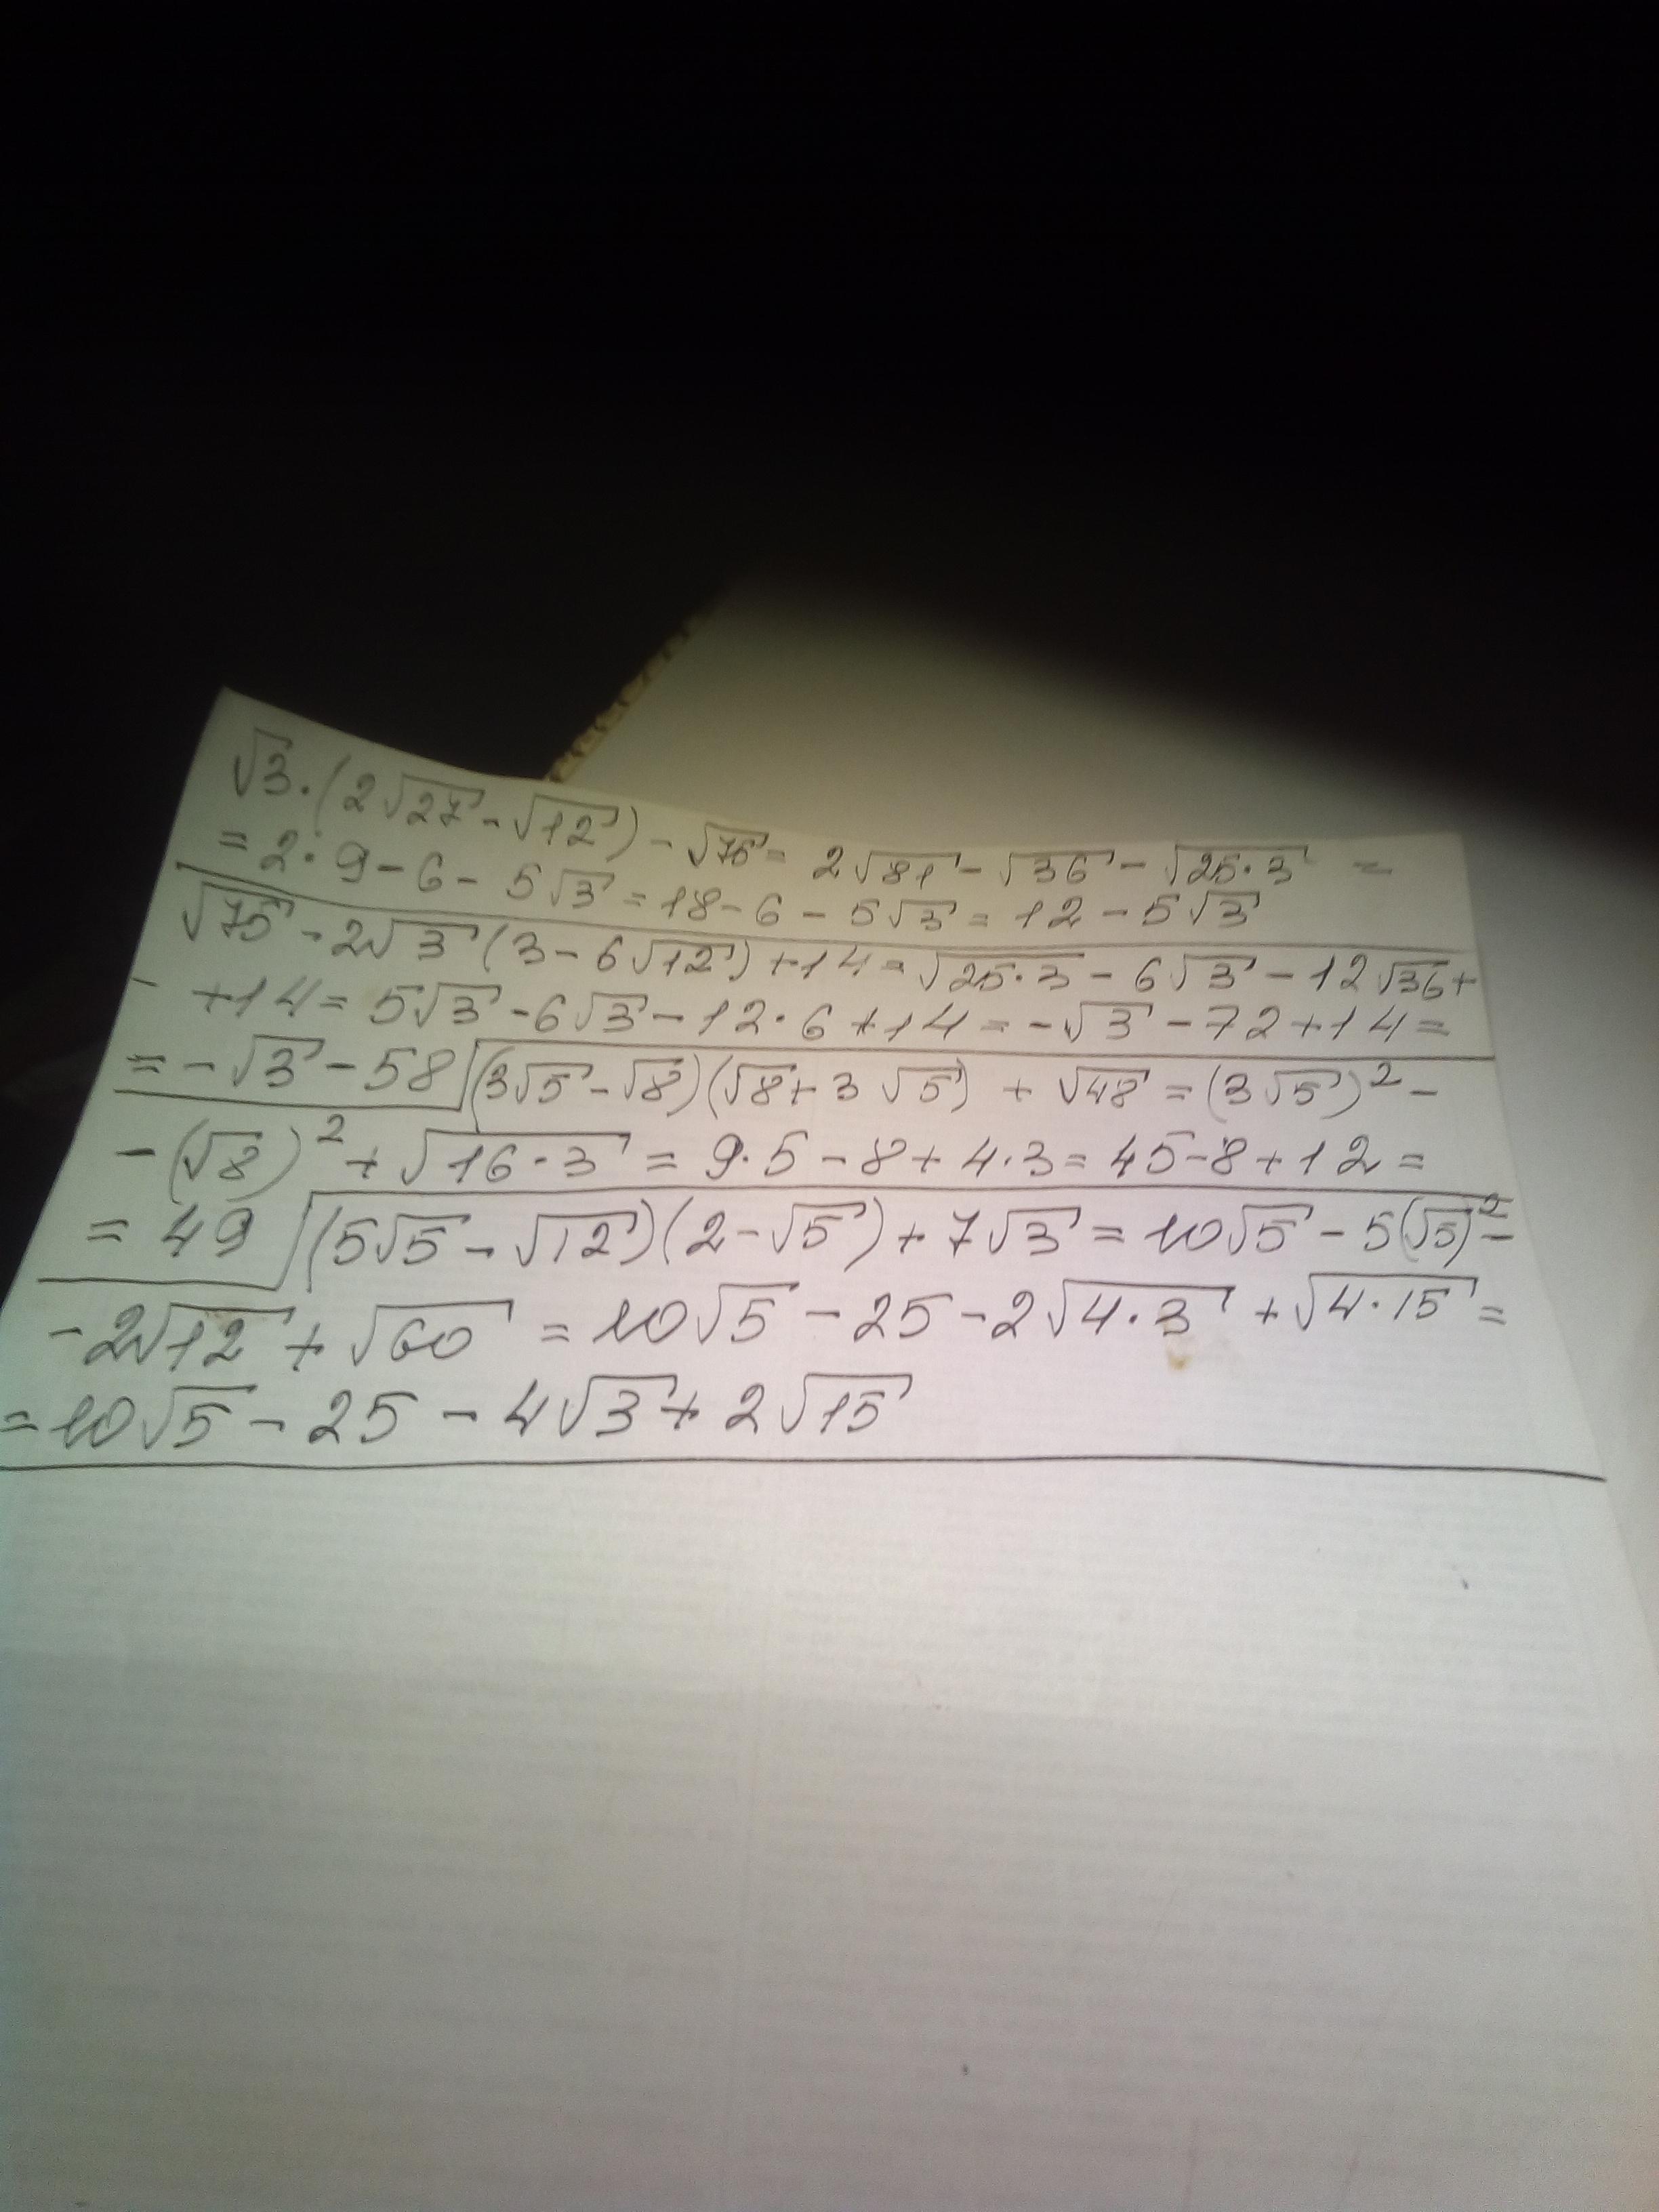 √3·(2√27-√12)-√75= 2√81-√36-√25·3 =
=2·9-6-5√3=18-6-5√3=12-5√3
√75-2√3(3-6√12)+14=√25·3-6√3-12√36+
+14=5√3-6√3-12·6+14=-√3-72+14=
=-√3-58 (3√5-√8)(√8+3√5)+√48=(3√5)²-
-(√8)²+√16·3=9·5-8+4·3=45-8+12=
=49 (5√5-√12)(2-√5)+7√3=10√5-5(√5)²-
-2√12+√60=10√5-25-2√4·3+√4·15=
=10√5-25-4√3+2√15